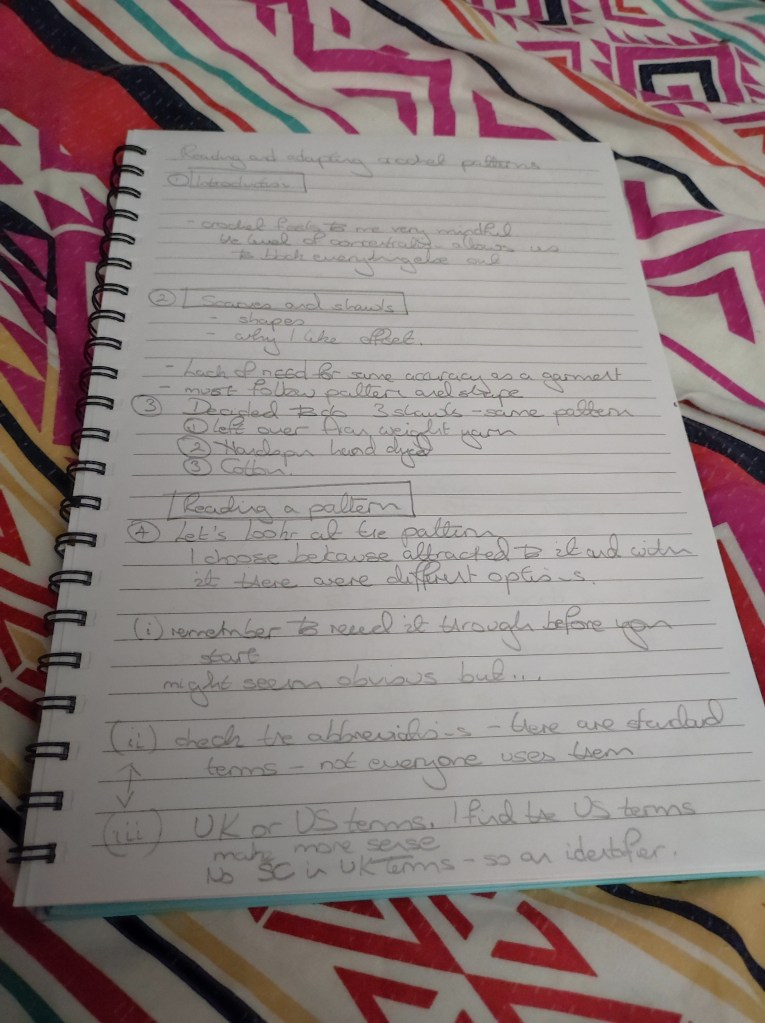 Reading and adapting crochet patterns
① Introduction
- crochet feels to me very mindful
the level of concentrat - allows us
to block everything else out
② Scarves and shawls
- shapes
- why I like offset.
- Lack of need for same accuracy as a garment
- must follow pattern and shape
③ Decided to do 3 shawls - same pattern
① Left over weight yarn
② Handspun hand dyed
③ Cotton.
Reading a pattern
④ Let's look at the pattern
I choose because attracted to it and within
it there were different options.
(i) remember to read it through before you
start
might seem obvious but...
(ii) check the abbreviations - there are standard
terms - not everyone uses them
(iii) UK or US terms, I find the US terms
make more sense
No SC in UK terms - so an identifier.